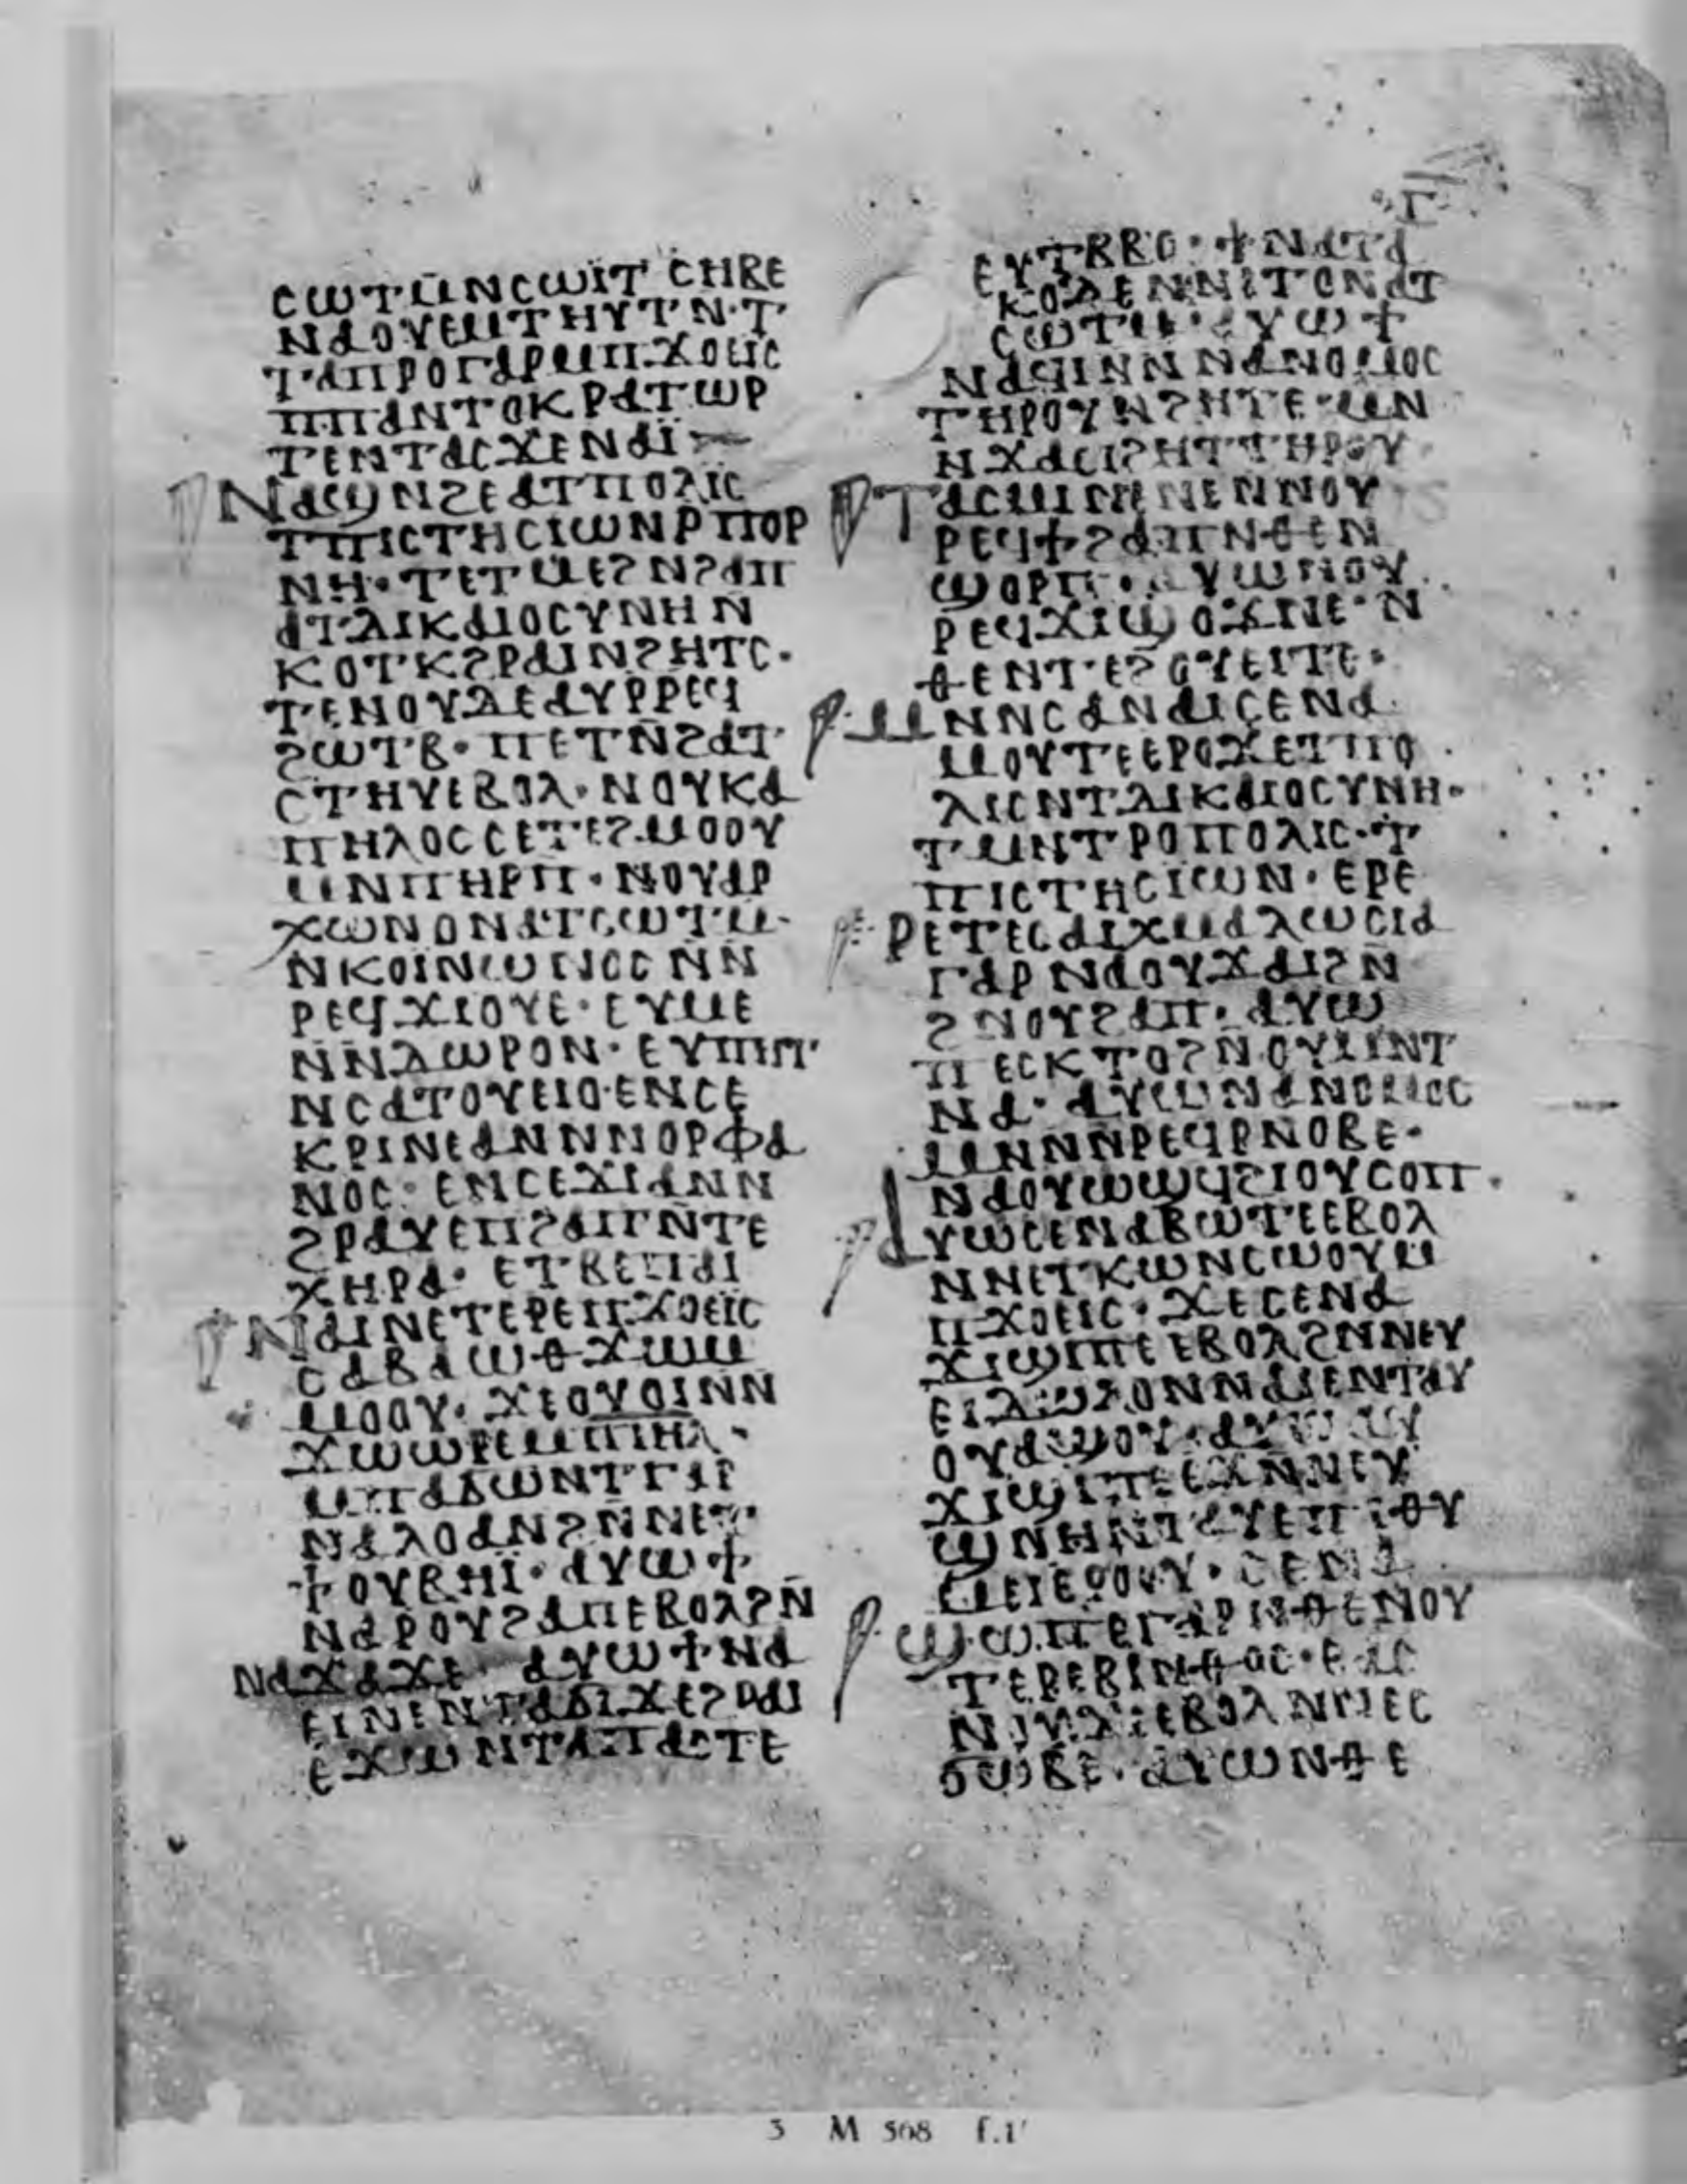 Γ
ⲥⲱⲧⲙⲛⲥⲱⲓ̈ⲧ ⲥⲏⲃⲉ
ⲛⲁⲟⲩⲉⲙⲧⲏⲩⲧⲛ·ⲧ
ⲧⲁⲡⲣⲟⲅⲁⲣⲙⲡϫⲟⲉⲓⲥ
ⲡⲡⲁⲛⲧⲟⲕⲣⲁⲧⲱⲣ
ⲧⲉⲛⲧⲁⲥϫⲉⲛⲁⲓ̈
ⲛⲁϣⲛϩⲉⲁⲧⲡⲟⲗⲓⲥ
ⲧⲡⲓⲥⲧⲏⲥⲓⲱⲛⲣⲡⲟⲣ
ⲛⲏ·ⲧⲉⲧⲙⲉϩⲛϩⲁⲡ
ⲁⲧⲇⲓⲕⲁⲓⲟⲥⲩⲛⲏⲛ̄
ⲕⲟⲧⲕϩⲣⲁⲓⲛϩⲏⲧⲥ·
ⲧⲉⲛⲟⲩⲇⲉⲁⲩⲣⲣⲉϥ
ϩⲱⲧⲃ·ⲡⲉⲧⲛ̄ϩⲁⲧ
ⲥⲧⲏⲩⲉⲃⲟⲗ·ⲛⲟⲩⲕⲁ
ⲡⲏⲗⲟⲥⲥⲉⲧⲉϩⲙⲟⲟⲩ
ⲙⲛⲡⲏⲣⲡ·ⲛⲟⲩⲁⲣ
ⲭⲱⲛⲟⲛⲁⲧⲥⲱⲧⲙ·
ⲛⲕⲟⲓⲛⲱⲛⲟⲥⲛⲛ
ⲣⲉϥϫⲓⲟⲩⲉ·ⲉⲩⲙⲉ
ⲛⲛⲇⲱⲣⲟⲛ·ⲉⲩⲡⲏⲧ
ⲛⲥⲁⲧⲟⲩⲉⲓⲟ·ⲉⲛⲥⲉ
ⲕⲣⲓⲛⲉⲁⲛⲛⲛⲟⲣⲫⲁ
ⲛⲟⲥ·ⲉⲛⲥⲉϫⲓⲁⲛⲛ
ϩⲣⲁⲩⲉⲡϩⲁⲡⲛ̄ⲧⲉ
ⲭⲏⲣⲁ·ⲉⲧⲃⲉⲡⲁⲓ
ⲛⲁⲓⲛⲉⲧⲉⲣⲉⲡϫⲟⲉⲓⲥ
ⲥⲁⲃⲁⲱⲑϫⲱⲙ
ⲙⲟⲟⲩ·ϫⲉⲟⲩⲟⲓⲛⲛ
ϫⲱⲱⲣⲉⲙⲡⲓⲏⲗ·
ⲙⲡⲁϭⲱⲛⲧⲅⲁⲣ
ⲛⲁⲗⲟⲁⲛϩⲛ̄ⲛⲉⲧ
ϯⲟⲩⲃⲏⲓ̈·ⲁⲩⲱϯ
ⲛⲁⲣⲟⲩϩⲁⲡⲉⲃⲟⲗϩⲛ̄
ⲛⲁϫⲁϫⲉ·ⲁⲩⲱϯⲛⲁ
ⲉⲓⲛⲉⲛⲧⲁϭⲓϫⲉϩⲣⲁⲓ
ⲉϫⲱⲛⲧⲁⲡⲁⲥⲧⲉ
ⲉⲩⲧⲃⲃⲟ·ϯⲛⲁⲧⲁ
ⲕⲟⲇⲉⲛⲛⲓⲧⲟⲛⲁⲧ
ⲥⲱⲧⲙ·ⲁⲩⲱϯ
ⲛⲁϥⲓⲛⲛⲛⲁⲛⲟⲙⲟⲥ
ⲧⲏⲣⲟⲩⲛϩⲏⲧⲉ·ⲙⲛ
ⲛϫⲁⲥⲓϩⲏⲧⲧⲏⲣⲟⲩ
ⲧⲁⲥⲙⲓⲛⲉⲛⲉⲛⲛⲟⲩ
ⲣⲉϥϯϩⲁⲡⲛⲑⲉⲛ
ϣⲟⲣⲡ·ⲁⲩⲱⲛⲟⲩ
ⲣⲉϥϫⲓϣⲟϫⲛⲉ·ⲛ
ⲑⲉⲛⲧⲉϩⲟⲩⲉⲓⲧⲉ·
ⲙⲛⲛⲥⲁⲛⲁⲓⲥⲉⲛⲁ
ⲙⲟⲩⲧⲉⲉⲣⲟϫⲉⲧⲡⲟ
ⲗⲓⲥⲛⲧⲇⲓⲕⲁⲓⲟⲥⲩⲛⲏ·
ⲧⲙⲛⲧⲣⲟⲡⲟⲗⲓⲥ·ⲧ
ⲡⲓⲥⲧⲏⲥⲓⲱⲛ·ⲉⲣⲉ
ⲣⲉⲧⲉⲥⲁⲓⲭⲙⲁⲗⲱⲥⲓⲁ
ⲅⲁⲣⲛⲁⲟⲩϫⲁⲓϩⲛ̄
ϩⲛⲟⲩϩⲁⲡ·ⲁⲩⲱ
ⲡⲉⲥⲕⲧⲟϩⲛⲟⲩⲙⲛⲧ
ⲛⲁ·ⲁⲩⲱⲛⲁⲛⲟⲙⲟⲥ
ⲙⲛⲛⲛⲣⲉϥⲣⲛⲟⲃⲉ·
ⲛⲁⲟⲩⲱϣϥϩⲓⲟⲩⲥⲟⲡ·
ⲁⲩⲱⲥⲉⲛⲁⲃⲱⲧⲉⲉⲃⲟⲗ
ⲛⲛⲉⲧⲕⲱⲛⲥⲱⲟⲩⲙ
ⲡϫⲟⲉⲓⲥ·ϫⲉⲥⲉⲛⲁ
ϫⲓϣⲓⲡⲉⲉⲃⲟⲗϩⲛⲛⲉⲩ
ⲉⲓⲇⲱⲗⲟⲛⲛⲁⲓⲉⲛⲧⲁⲩ
ⲟⲩⲁϣⲟⲩ·ⲁⲩⲱⲁⲩ
ϫⲓϣⲓⲡⲉⲉϫⲛⲛⲉⲩ
ϣⲛⲏⲛⲧⲁⲩⲉⲡⲓⲑⲩ
ⲙⲉⲓⲉⲣⲟⲟⲩ·ⲥⲉⲛⲁ
ϣⲱⲡⲉⲅⲁⲣⲛⲑⲉⲛⲟⲩ
ⲧⲉⲣⲉⲃⲓⲛⲑⲟⲥ·ⲉⲁⲥ
ⲛⲟⲩϫⲉⲉⲃⲟⲗⲛⲛⲉⲥ
ϭⲱⲃⲉ·ⲁⲩⲱⲛⲑⲉ
3 M 568 f.1ʳ